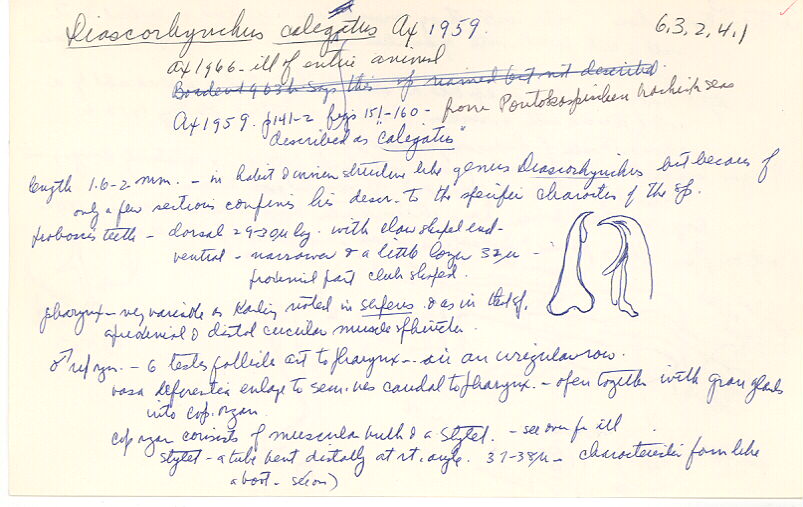 Diascorhynchus calegatus Ax 1959. 6,3,2,4,1
Ax 1966 - ill of entire animal
Boaden 1963b says this sp named but not described.
Ax 1959. p141-2 figs 151-160 - from
described as "calegatus"
length 1.6-2 mm. - in habit & inner structure like genus Diascorhynchus but because of
only a few sections confines his descr. to the specific characters of the sp.
proboscis teeth - dorsal 29-30µ lg. with claw shaped end -
ventral - narrower & a little longer 32µ -
proximal part club shaped.
pharynx - very variable as Karling noted in & as in that sp.
a proximal & distal circular muscle sphincter.
♂ rep. sys. - 6 testes follicle ant to pharynx - in an irregular row.
vasa deferentia enlarge to sem. ves caudal to pharynx. - open together with gran glands
into cop. organ.
cop organ consists of muscular bulb & a stylet. - see over for ill
stylet - a tube bent distally at rt. angle. 37-38µ - characteristic form like
a boot -